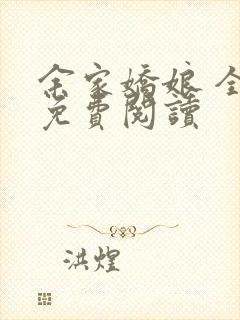 余家嬌娘 全
免費閱讀
洪煌